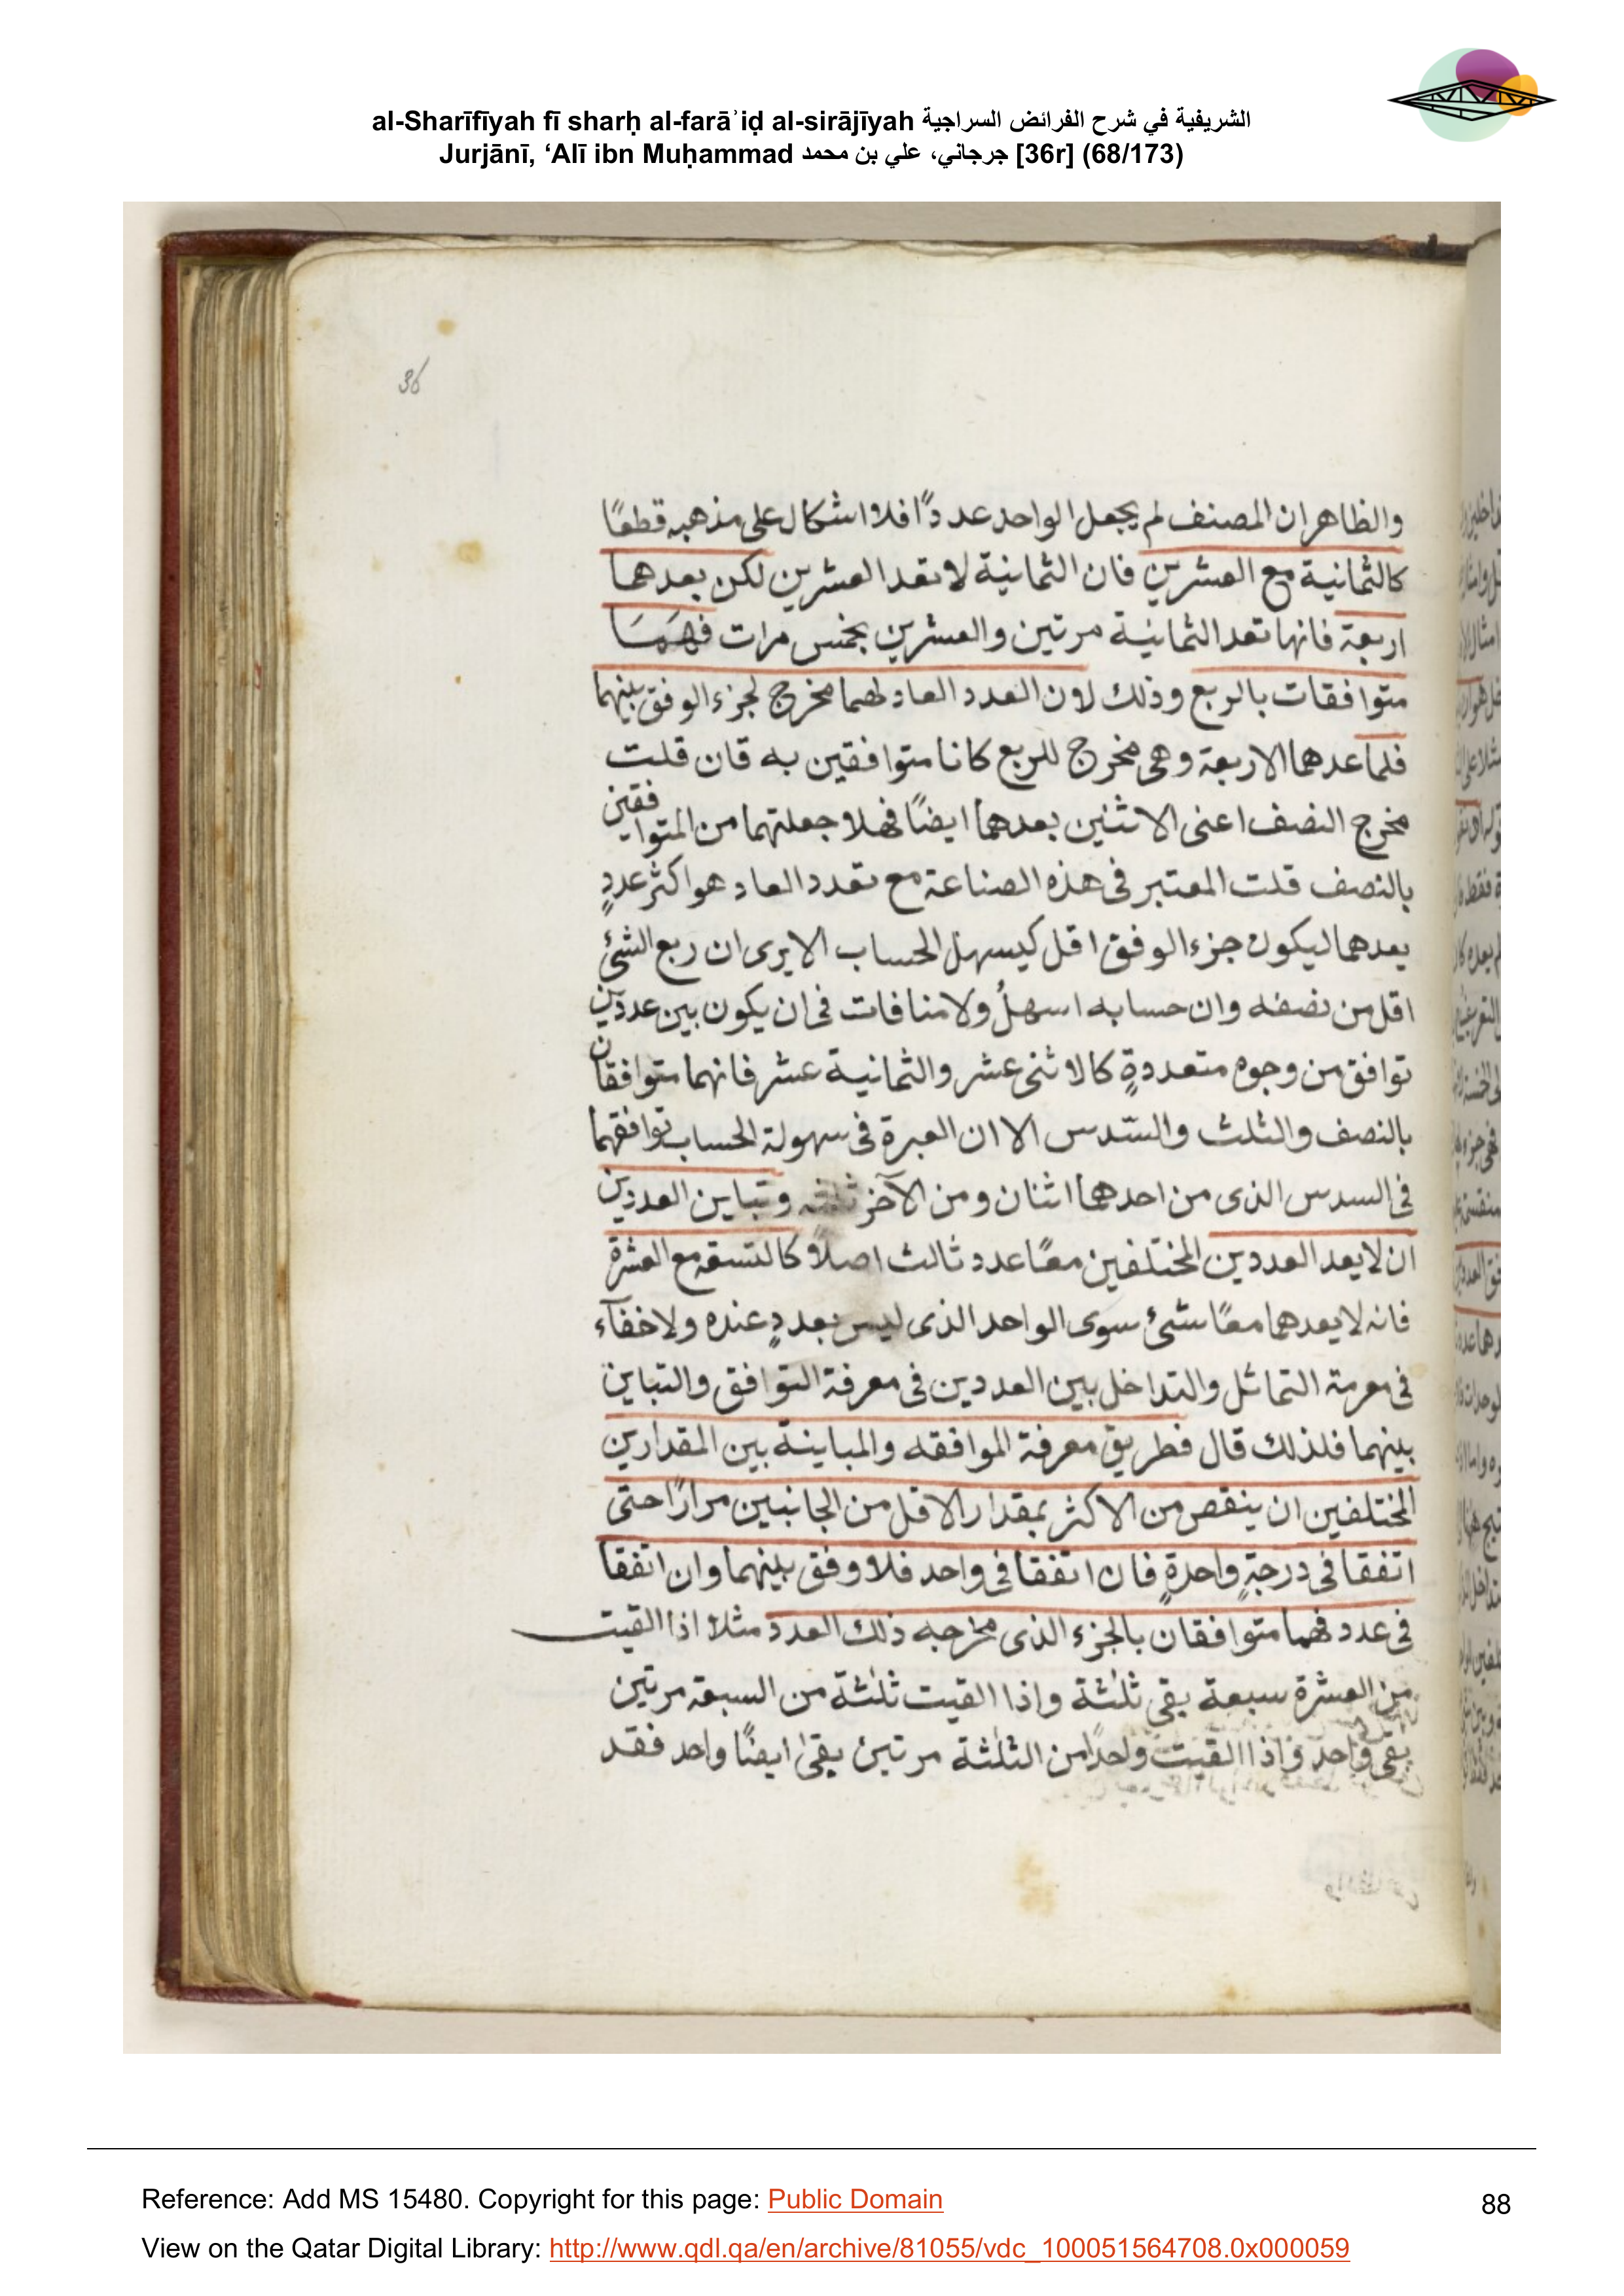 al-Sharīfīyah fī sharḥ al-farāʾiḍ al-sirājīyah الشريفية في شرح الفرائض السراجية
Jurjānī, ‘Alī ibn Muḥammad جرجاني، علي بن محمد [36r] (68/173)
36
والظاهر ان المصنف لم يجعل الواحد عددًا فلا اشكال على مذهبه قطعًا
كالثمانية مع العشرين فان الثمانية لا تعد العشرين لكن يعدهما
اربعة فانها تعد الثمانية مرتين والعشرين بخمس مرات فهما
متوافقات بالربع وذلك لان العدد العاد لهما مخرج لجزء الوفق بينهما
فلما عدهما الاربعة وهى مخرج للربع كانا متوافقين به فان قلت
مخرج النصف اعنى الاثنين يعدهما ايضًا فهلا جعلتهما من المتوافقين
بالنصف قلت المعتبر فى هذه الصناعة مع تعدد العاد هو اكثر عددٍ
يعدهما ليكون جزء الوفق اقل كيسهل الحساب الا يرى ان ربع الشئ
اقل من نصفه وان حسابه اسهلُ ولا منافات فى ان يكون بين عددين
توافق من وجوه متعددةٍ كالاثنى عشر والثمانية عشر فانهما متوافقان
بالنصف والثلث والسّدس الا ان العبرة فى سهولة الحساب توافقهما
فى السدس الذى من احدهما اثنان ومن الآخر ثلثه وتباين العددين
ان لا يعد العددين المختلفين معًا عدد ثالث اصلاً كالتسعة مع العشرة
فانه لا يعدهما معًا شئ سوى الواحد الذى ليس بعددٍ عنده ولا خفآء
فى معرفة التماثل والتداخل بين العددين فى معرفة التوافق والتباين
بينهما فلذلك قال فطريق معرفة الموافقه والمباينة بين المقدارين
المختلفين ان ينقص من الاكثر بمقدار الاقل من الجانبين مرارًا حتى
اتفقا فى درجةٍ واحدةٍ فان اتفقا فى واحد فلا وفق بينهما وان اتفقا
فى عدد فهما متوافقان بالجزء الذى مخرجه ذلك العدد مثلا اذا القيت
من العشرة سبعة بقى ثلثة واذا القيت ثلثة من السبعة مرتين
بقى واحد واذا القيت واحدًا من الثلثة مرتين بقى ايضًا واحد فقد
Reference: Add MS 15480. Copyright for this page: Public Domain
88
View on the Qatar Digital Library: http://www.qdl.qa/en/archive/81055/vdc_100051564708.0x000059